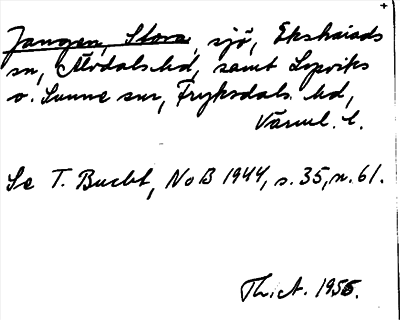 Jangen, Stora, sjö, Ekshärads
sn, Älvdals hd, samt Lysviks
o. Sunne snr, Fryksdals hd,
Värml. l.
Se T. Bucht, NoB 1944, s. 35, n. 61.
Th. A. 1956.